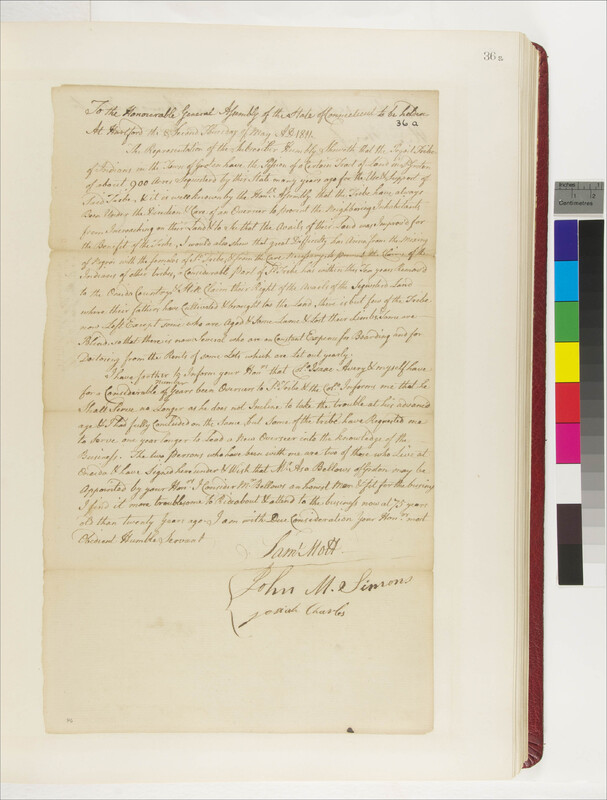 36 a
To the Honourable General Assembly of the State of Connecticut to be holden
36 a
At Hartford the Second Thursday of May AD 1811.
The Representation of the Subscriber Humbly Sheweth that the Pequot Tribe
of Indians in the Town of Groton have the Possession of a Certain Tract of Land in sd Groton
of about 900 Acres Sequestered by this State many years ago for the Use & Support of
Said Tribe & it is well known by the Honl. Assembly that the Tribe have always
Been Under the Direction & Care of an Overseer to prevent the Neighbouring Inhabitants
from Incroaching on their Land & So that the Avails of their Land was Improved for
the Benefit of the Tribe, I would also shew that great Difficulty has Arisen from the Mixing
of Negros with the females of sd. Tribe, & from the Care the Claims of the
Indians of other tribes, a Considerable Part of sd. Tribe has within this few years Remov'd
to the Oneida Country & still Claim their Right of the Avails of the Sequesterd Land
where their fathers have Cultivated & brought too the Land, there is but few of the Tribe
now Left Except some who are Aged & Some Lame & Lost their Limbs & some are
Blind, so that there is now Several who are on Constant Expence for Boarding and for
Doctoring from the Rents of some Lots which are let out yearly;
I have further to Inform your Honrs. that Colo. Isaac Avery & myself have
for a Considerable number of years been Overseers to sd. Tribe & the Colo. Informs me that he
Shall Serve no Longer as he does not Incline to take the trouble at his advanced
age & I Had fully Concluded on the Same, but Some of the tribe have Requested me
to Serve one year longer to Lead a New Overseer into the Knowledge of the
Business. The two Persons who have been with me are two of those who Live at
Oneida & have Signed hereunder & Wish that Mr. Asa Bellows of Groton may be
Appointed by your Honrs. I Consider Mr. Bellows an honest Man & fit for the business
I find it more troublesome to Ride about & attend to the business now at 75 years
old than twenty years ago. I am with Due Consideration your Honrs. most
Obedient Humble Servant
Saml. Mott
John M. Simons
Josiah Charles
Inches
Centimetres